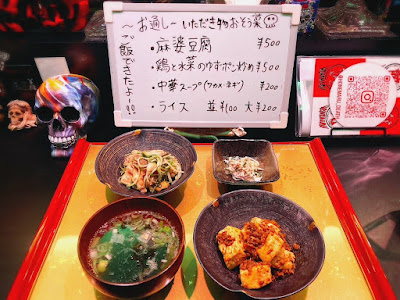 〜お通し〜いただき物おそう菜
・麻婆豆腐 ¥500
・鶏と水菜のゆずポン炒め ¥500
・中華スープ(ワカメ・ネギ) ¥200
・ライス 並¥100 大¥200
〜ご飯できたよー!!